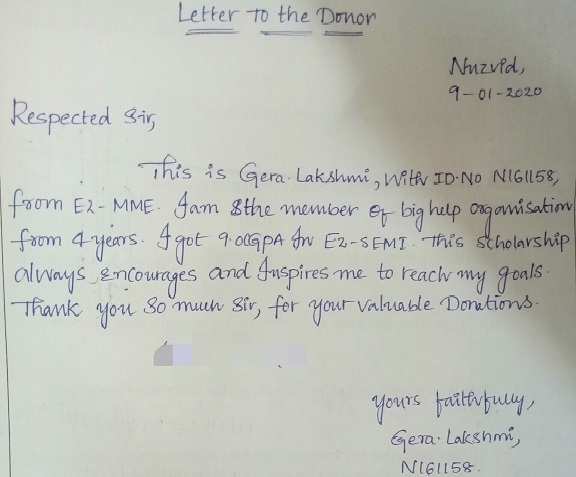 Letter To the Donor
Nuzvid,
9-01-2020
Respected Sir,
This is Gera. Lakshmi, With ID.No N161158,
from E2-MME. I am the member of big help organisation
from 4 years. I got 9.0CGPA In E2-SEM1. This Scholarship
always Encourages and Inspires me to reach my goals.
Thank you So much Sir, for your Valuable Donations.
yours faithfully,
Gera. Lakshmi,
N161158.